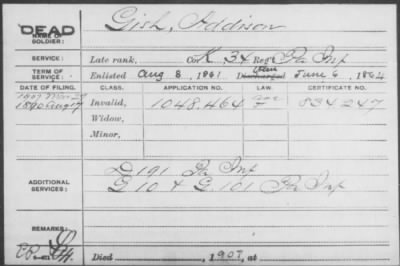 DEAD
NAME OF
SOLDIER:
Gish, Addison
SERVICE:
Late rank, Co. K, 34 Reg't Pa Inf
TERM OF
SERVICE:
Enlisted Aug 8, 1861 Discharged June 6, 1864
DATE OF FILING. CLASS. APPLICATION NO. LAW. CERTIFICATE NO.
1890 Aug 17 Invalid, 1048.464 834247
Widow,
Minor,
ADDITIONAL
SERVICES:
D 191 Pa Inf
G 10 & G. 101 Pa Inf
REMARKS:
Died 1907, at